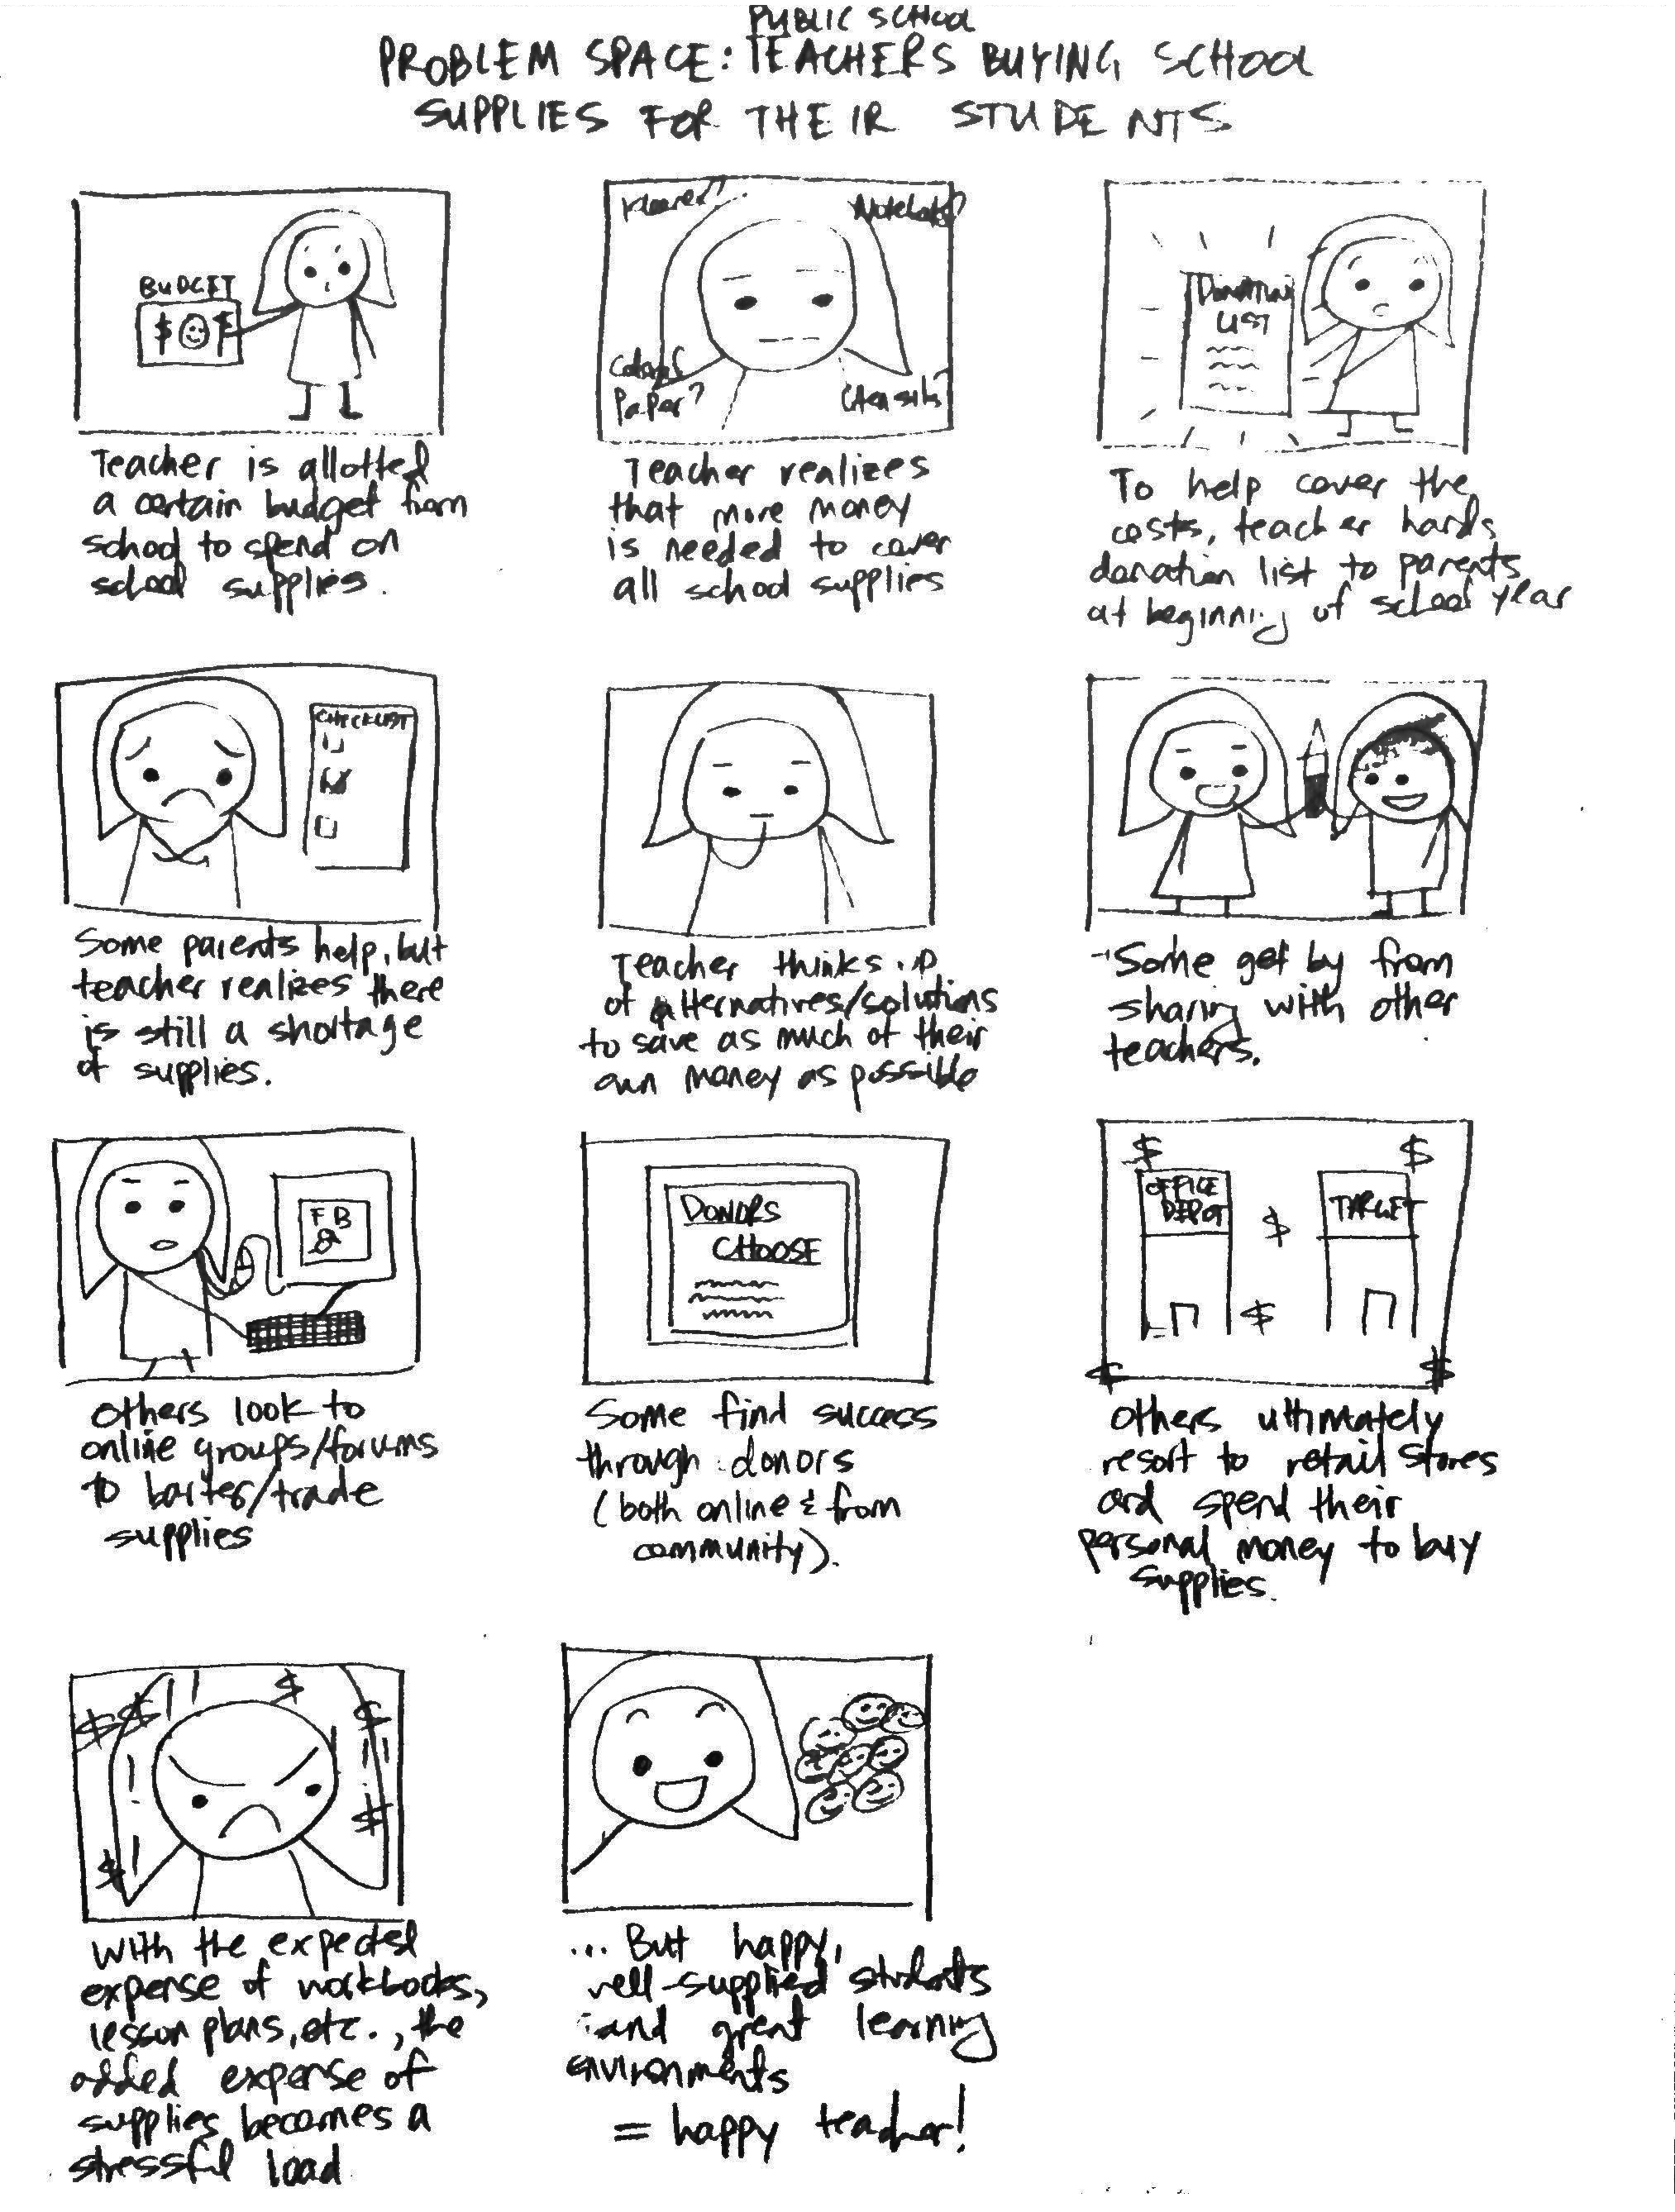 PUBLIC SCHOOL
PROBLEM SPACE: TEACHERS BUYING SCHOOL
SUPPLIES FOR THEIR STUDENTS
BUDGET
$ $
Teacher is allotted
a certain budget from
school to spend on
school supplies.
Kleenex?
Notebooks?
Colored
Paper?
Utensils?
Teacher realizes
that more money
is needed to cover
all school supplies
DONATION
LIST
To help cover the
costs, teacher hands
donation list to parents
at beginning of school year
CHECKLIST
Some parents help, but
teacher realizes there
is still a shortage
of supplies.
Teacher thinks
of alternatives/solutions
to save as much of their
own money as possible
Some get by from
sharing with other
teachers.
FB
Others look to
online groups/forums
to barter/trade
supplies
DONORS
CHOOSE
Some find success
through donors
(both online & from
community).
$ $
OFFICE
DEPOT
$
TARGET
$
$ $
Others ultimately
resort to retail stores
and spend their
personal money to buy
supplies.
$ $ ! ! $ $
! ! !
$
$ !
With the expected
expense of workbooks,
lesson plans, etc., the
added expense of
supplies becomes a
stressful load
... But happy,
well-supplied students
and great learning
environments
= happy teacher!